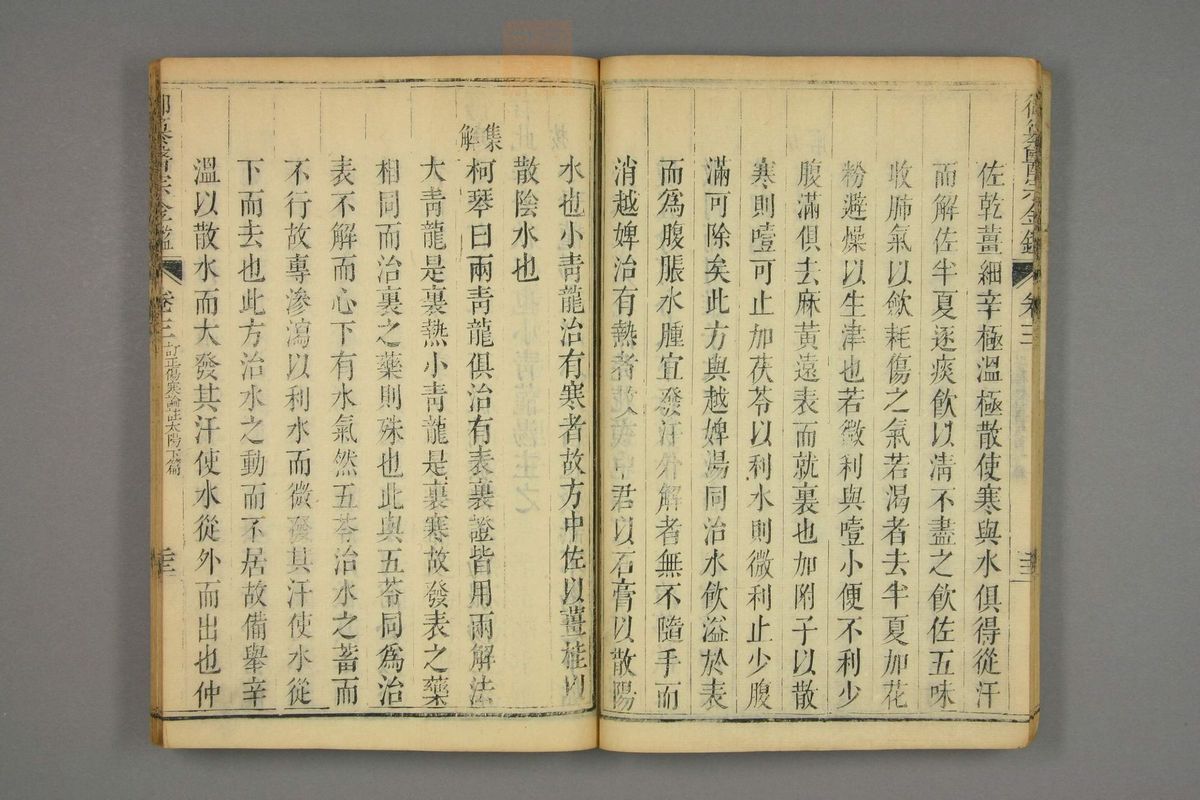 佐乾薑細辛極溫極散使寒與水俱得從汗
而解佐半夏逐痰飲以清不盡之飲佐五味
收肺氣以斂耗傷之氣若渴者去半夏加花
粉避燥以生津也若微利與噎小便不利少
腹滿俱去麻黃遠表而就裏也加附子以散
寒則噎可止加茯苓以利水則微利止少腹
滿可除矣此方與越婢湯同治水飲溢於表
而爲腹脹水腫宜發汗外解者無不隨手而
消越婢治有熱者故方中君以石膏以散陽
水也小靑龍治有寒者故方中佐以薑桂以
散陰水也
集解
柯琴曰兩靑龍俱治有表裏證皆用兩解法
大靑龍是裏熱小靑龍是裏寒故發表之藥
相同而治裏之藥則殊也此與五苓同爲治
表不解而心下有水氣然五苓治水之蓄而
不行故專滲瀉以利水而微發其汗使水從
下而去也此方治水之動而不居故備舉辛
溫以散水而大發其汗使水從外而出也仲
御纂醫宗金鑑 卷三 訂正傷寒論註太陽下篇
御纂醫宗金鑑 卷三